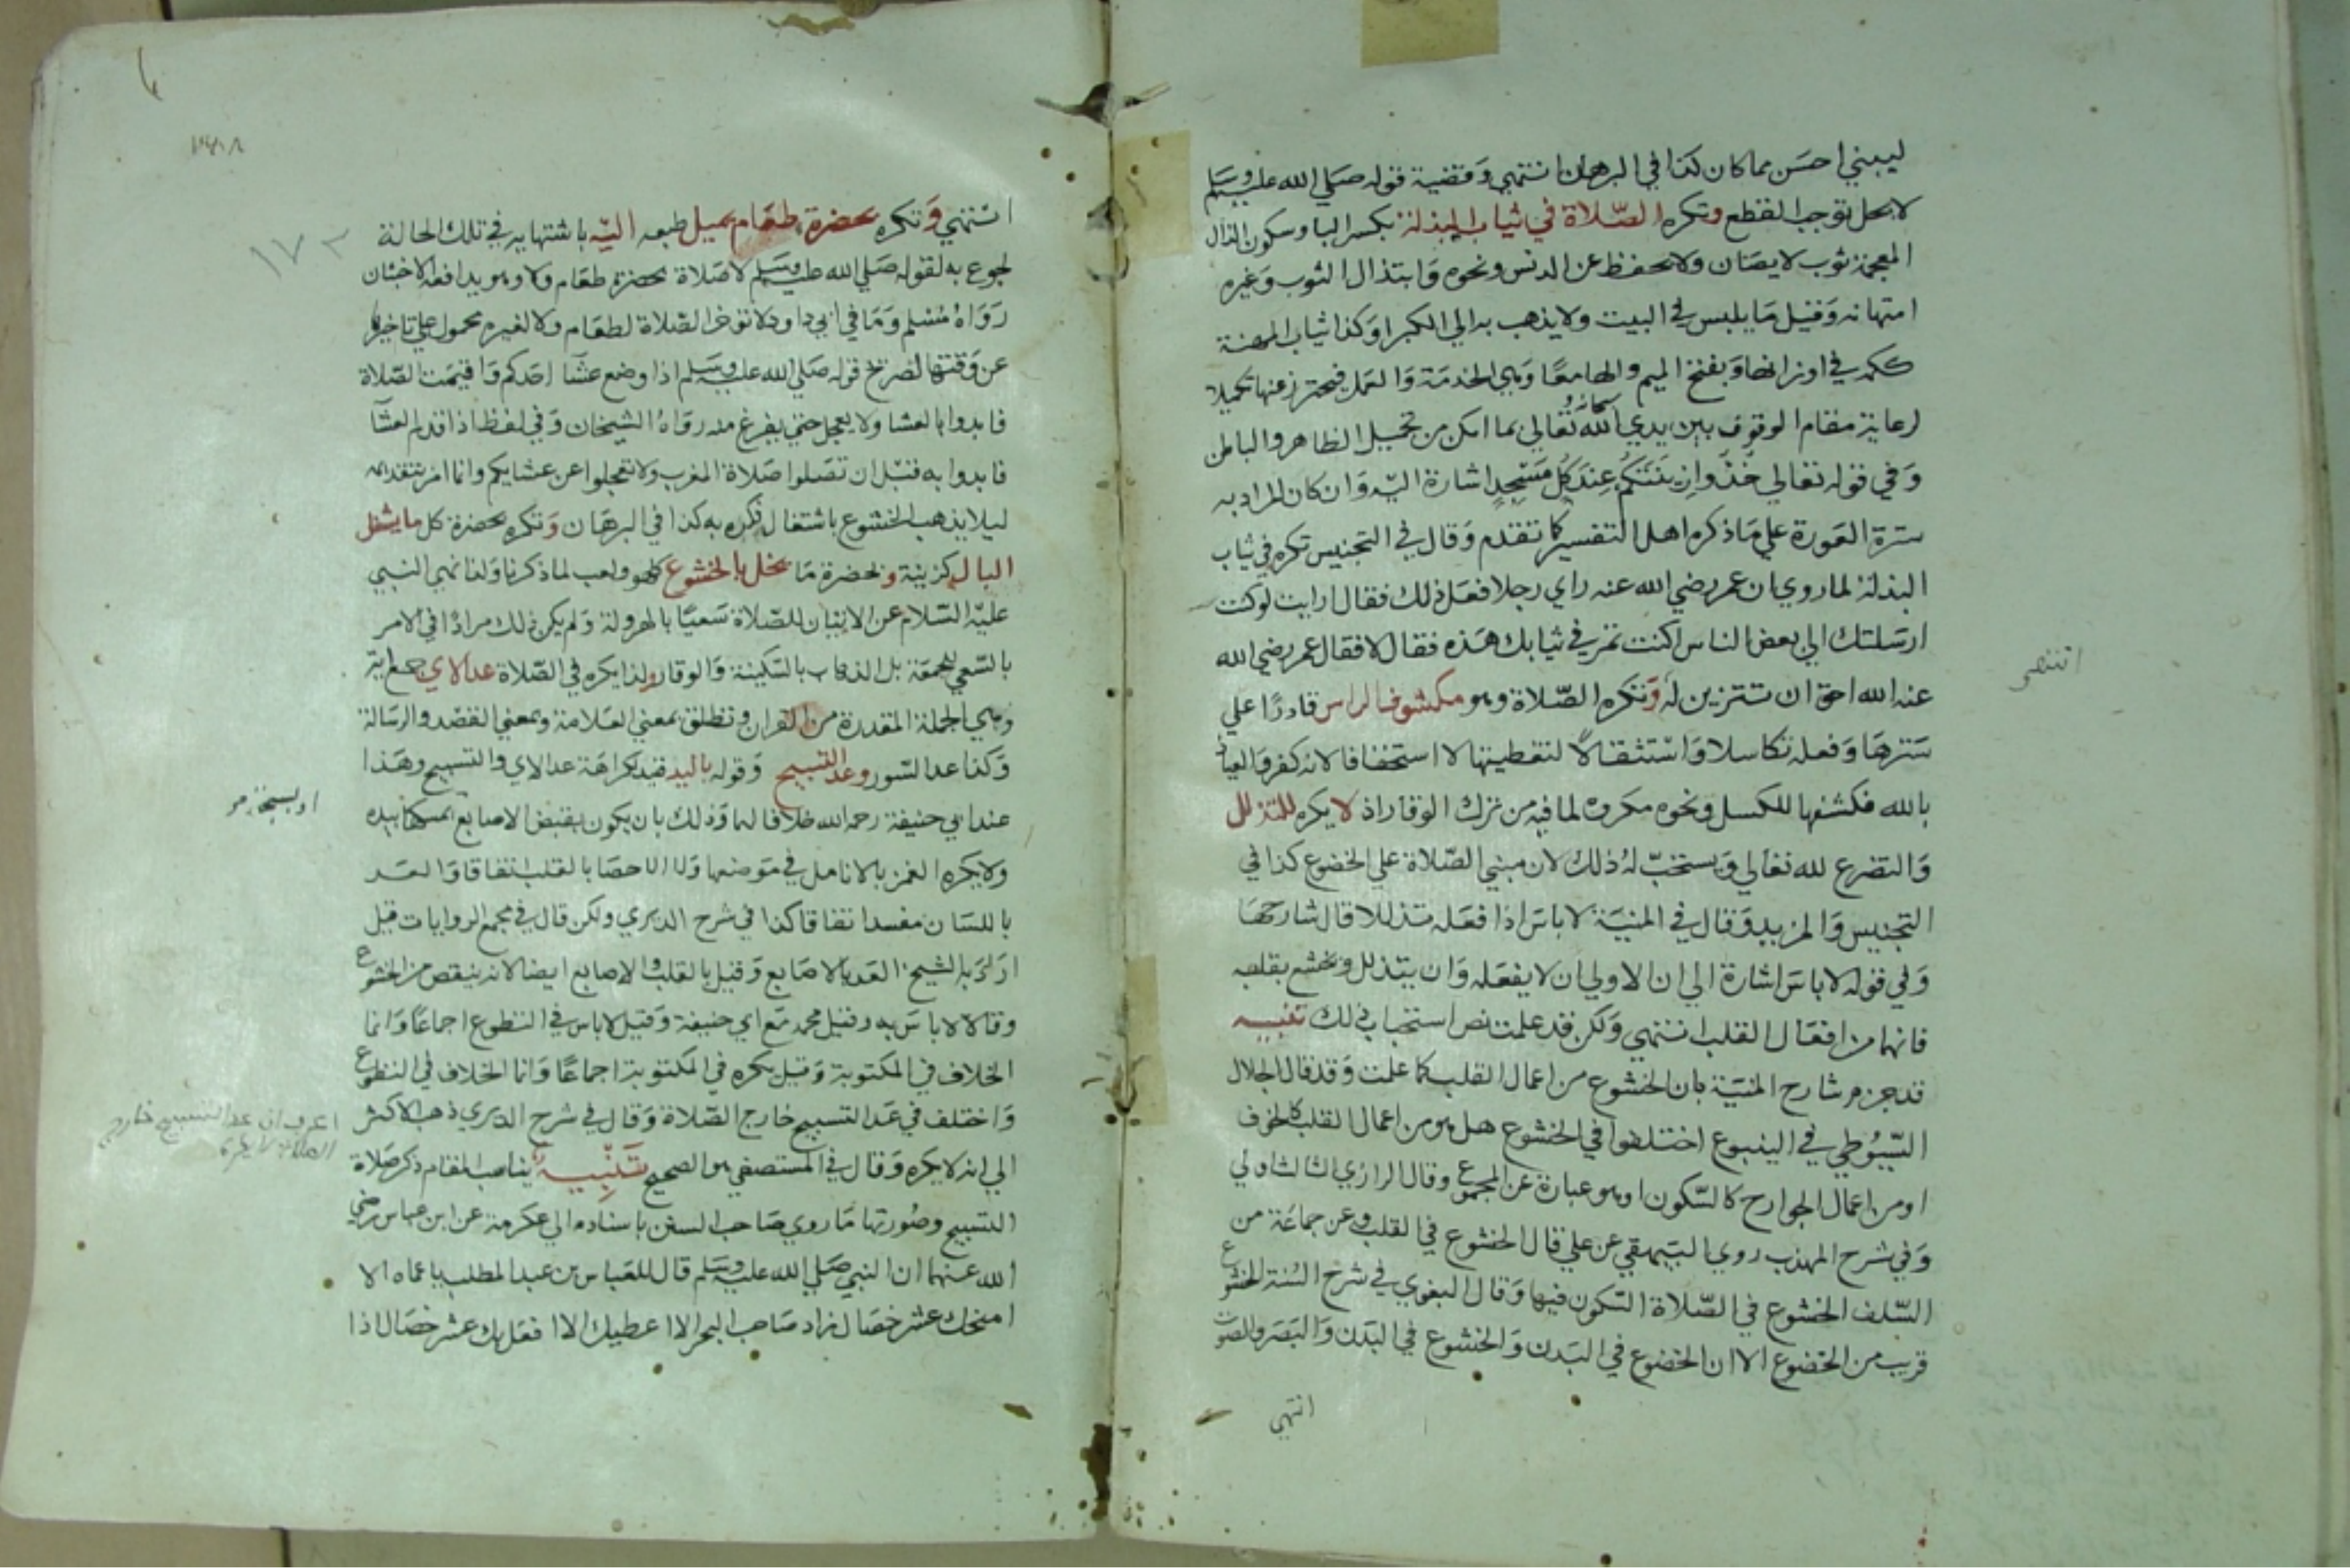 ليبني احسن مما كان كذا في البرهان انتهي وقضية قوله صلي الله عليه وسلم
لا يحل توجب القطع وتكره الصلاة في ثياب البذلة بكسر البا وسكون الذال
المعجمة ثوب لا يصان ولا يحفظ عن الدنس ونحوه وابتذال الثوب وغيره
امتهانه وقيل ما يلبس في البيت ولا يذهب به الي الكبرا وكذا ثياب المهنة
ككمه في اوزانها وبفتح الميم والها معا وهي الخدمة والعمل فيحترز عنها تكميلا
لرعاية مقام الوقوف بين يدي الله سبحانه وتعالي بما امكن من تجميل الظاهر والباطن
وفي قوله تعالي خذوا زينتكم عند كل مسجد اشارة اليه وان كان المراد به
سترة العورة علي ما ذكره اهل التفسير كما تقدم وقال في التجنيس تكره في ثياب
البذلة لما روي ان عمر رضي الله عنه راي رجلا فعل ذلك فقال ارايت لو كنت
ارسلتك الي بعض الناس اكنت تمر في ثيابك هذه فقال لا فقال عمر رضي الله
عنه الله احق ان تتزين له وتكره الصلاة وهو مكشوف الراس قادرا علي
سترها وفعله تكاسلا واستثقالا لتغطيتها لا استخفافا لانه كفر والعياذ
بالله فكشفها للكسل ونحوه مكروه لما فيه من ترك الوقار اذ لا يكره للتذلل
والتضرع لله تعالي ويستحب له ذلك لان مبني الصلاة علي الخضوع كذا في
التجنيس والمزيد وقال في المنية لا باس اذا فعله تذللا قال شارحها
وفي قوله لا باس اشارة الي ان الاولي ان لا يفعله وان يتذلل ويخشع بقلبه
فانهما من افعال القلب انتهي ولكن قد علمت نص استحباب ذلك تنبيه
قد جزم شارح المنية بان الخشوع من اعمال القلب كما علمت وقد قال الجلال
السيوطي في الينبوع اختلفوا في الخشوع هل هو من اعمال القلب كالخوف
او من اعمال الجوارح كالسكون او هو عبارة عن المجموع وقال الرازي الثالث اولي
وفي شرح المهذب روي البيهقي عن علي قال الخشوع في القلب وعن جماعة من
السلف الخشوع في الصلاة السكون فيها وقال البغوي في شرح السنة الخشوع
قريب من الخضوع الا ان الخضوع في البدن والخشوع في البدن والبصر والصوت
انتهي
انتهي
١٧٢
انتهي وتكره بحضرة طعام يميل طبعه اليه باشتهايه في تلك الحالة
لجوع به لقوله صلي الله عليه وسلم لا صلاة بحضرة طعام ولا وهو يدافعه الاخبثان
رواه مسلم وما في ابي داود لا تؤخر الصلاة لطعام ولا لغيره محمول علي تاخيرها
عن وقتها لصريح قوله صلي الله عليه وسلم اذا وضع عشا احدكم واقيمت الصلاة
فابدوا بالعشا ولا يعجل حتي يفرغ منه رواه الشيخان وفي لفظ اذا قدم العشا
فابدوا به قبل ان تصلوا صلاة المغرب ولا تعجلوا عن عشايكم وانما امر بتقديمه
ليلا يذهب الخشوع باشتغال فكره به كذا في البرهان وتكره بحضرة كل ما يشغل
البال كزينة وبحضرة ما يخل بالخشوع كلهو ولعب لما ذكرنا ولذا نهي النبي
عليه السلام عن الاتيان للصلاة سعيا بالهرولة ولم يكن ذلك مرادا في الامر
بالسعي للجمعة بل الذهاب بالسكينة والوقار ولذا يكره في الصلاة عد الاي جمع اية
وهي الجملة المقدرة من القران وتطلق بمعني العلامة وبمعني القصد والرسالة
وكذا عد السور وعد التسبيح وقوله باليد قيد لكراهة عد الاي والتسبيح وهذا
عند ابي حنيفة رحمه الله خلافا لهما وذلك بان يكون بقبض الاصابع يمسكها بيده
ولا يكره الغمز بالانامل في موضعها ولا الاحصا بالقلب اتفاقا والعد
باللسان مفسد اتفاقا كذا في شرح الديري ولكن قال في مجمع الروايات قيل
اراد به الشيخ العد بالاصابع وقيل بالقلب والاصابع ايضا لانه ينقص من الخشوع
وقالا لا باس به وقيل محمد مع ابي حنيفة وقيل لا باس في التطوع اجماعا وانما
الخلاف في المكتوبة وقيل يكره في المكتوبة اجماعا وانما الخلاف في التطوع
واختلف في عد التسبيح خارج الصلاة وقال في شرح الديري ذهب الاكثر
الي انه لا يكره وقال في المستصفي هو الصحيح تنبيه يناسب المقام ذكر صلاة
التسبيح وصورتها ما روي صاحب السنن باسناده الي عكرمة عن ابن عباس رضي
الله عنهما ان النبي صلي الله عليه وسلم قال للعباس بن عبد المطلب يا عماه الا
امنحك عشر خصال زاد صاحب البحر الا اعطيك الا افعل بك عشر خصال اذا
عد التسبيح خارج
الصلاة لا يكره